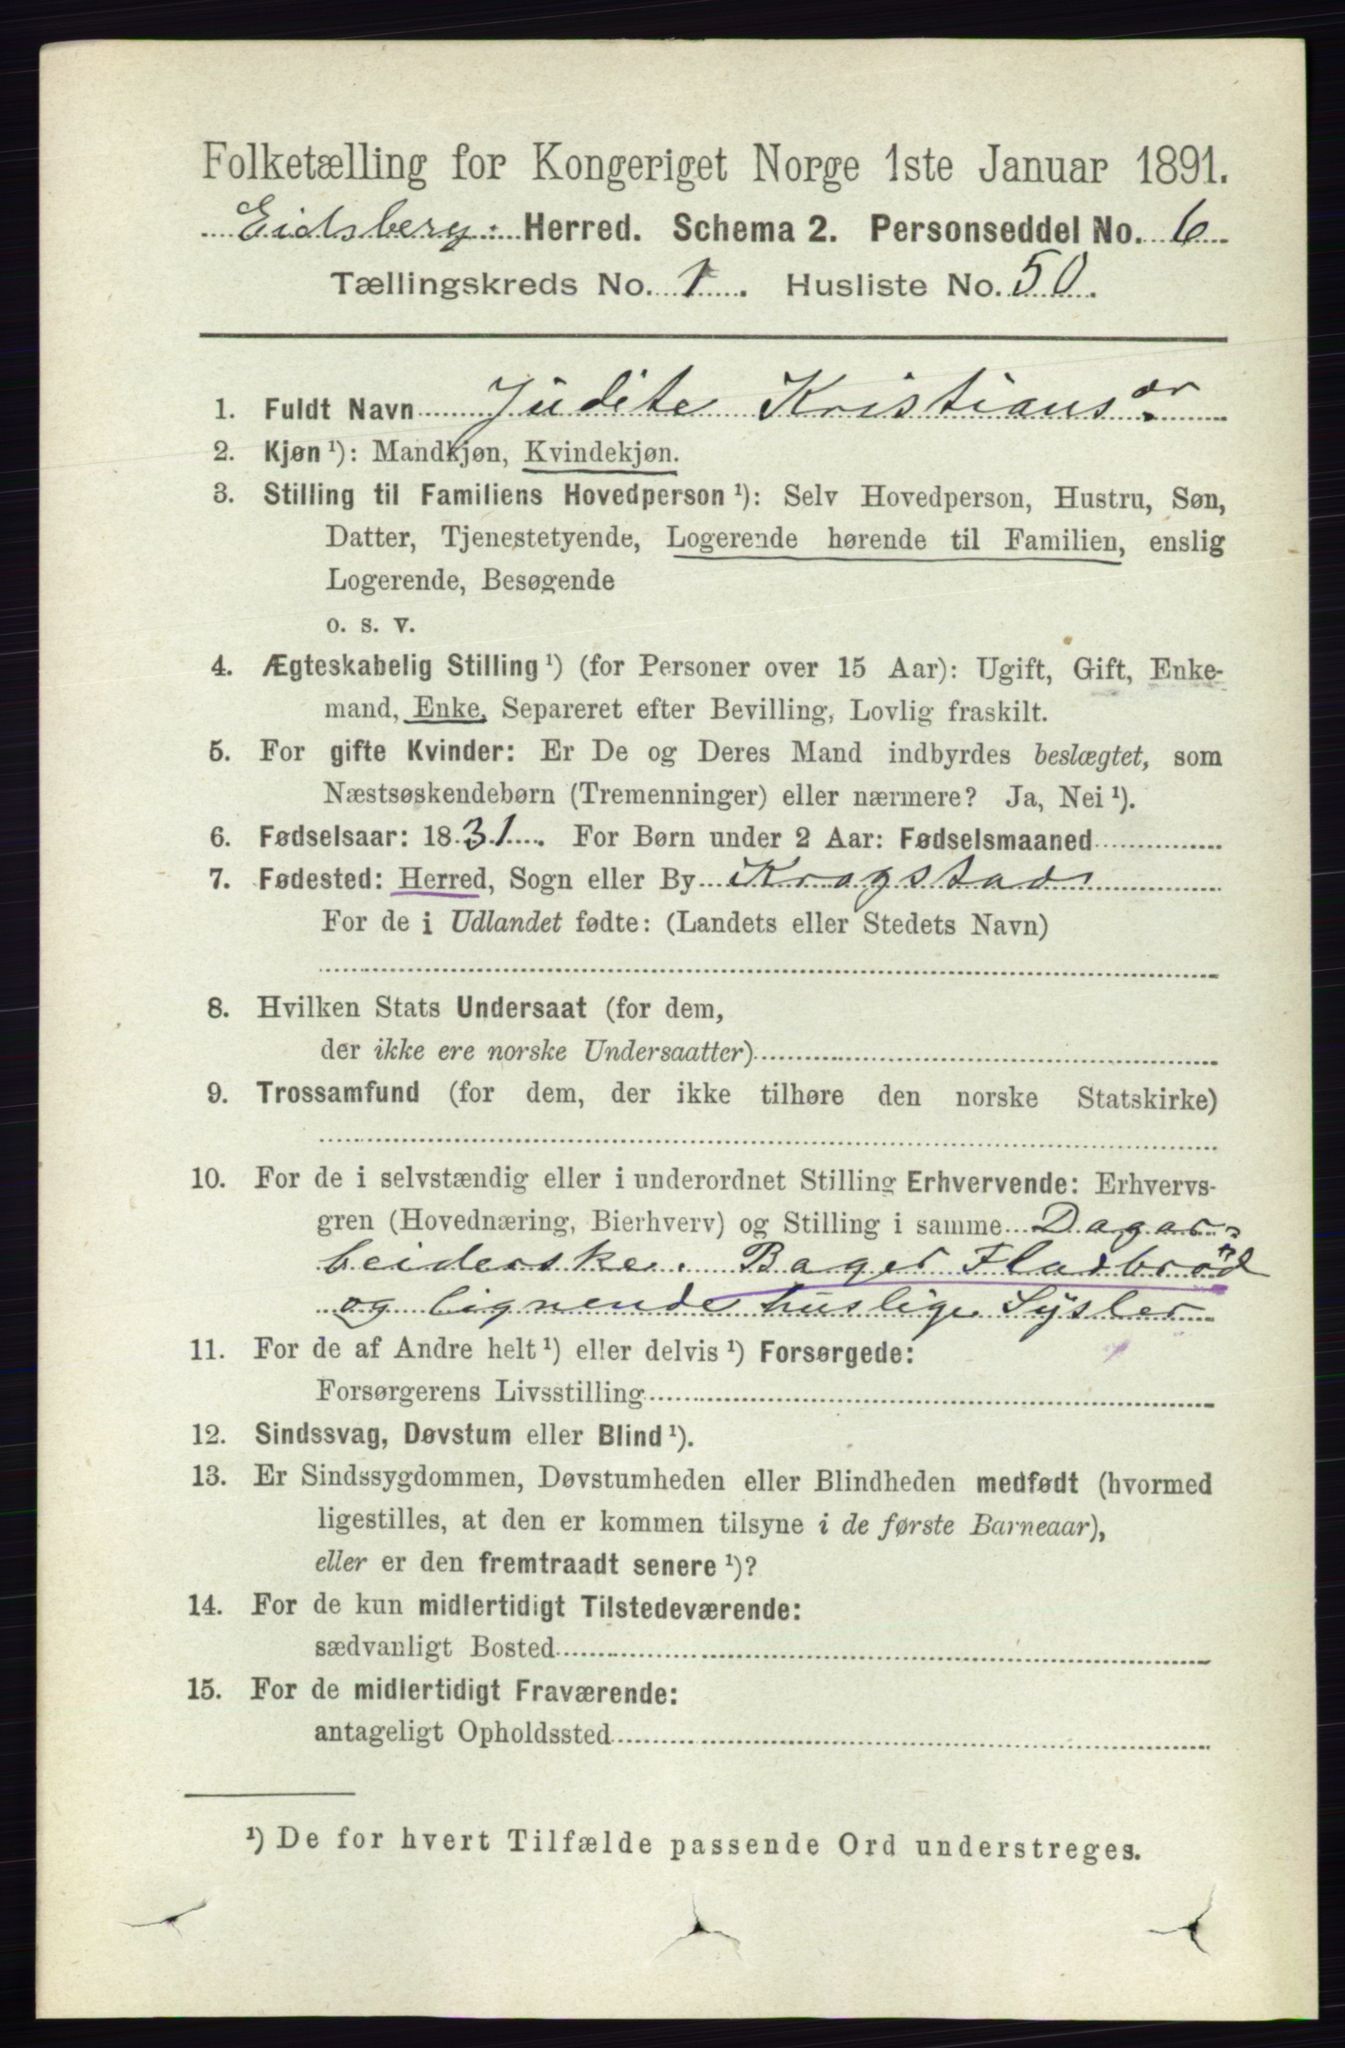 Folketælling for Kongeriget Norge 1ste Januar 1891.
Eidsberg Herred. Schema 2. Personseddel No. 6
Tællingskreds No. 1. Husliste No. 50.
1. Fuldt Navn Judite Kristiansdr
2. Kjøn ¹): Mandkjøn, Kvindekjøn.
3. Stilling til Familiens Hovedperson ¹): Selv Hovedperson, Hustru, Søn,
Datter, Tjenestetyende, Logerende hørende til Familien, enslig
Logerende, Besøgende
o. s. v.
4. Ægteskabelig Stilling ¹) (for Personer over 15 Aar): Ugift, Gift, Enke-
mand, Enke, Separeret efter Bevilling, Lovlig fraskilt.
5. For gifte Kvinder: Er De og Deres Mand indbyrdes beslægtet, som
Næstsøskendebørn (Tremenninger) eller nærmere? Ja, Nei ¹).
6. Fødselsaar: 1831. For Børn under 2 Aar: Fødselsmaaned
7. Fødested: Herred, Sogn eller By Krogstad
For de i Udlandet fødte: (Landets eller Stedets Navn)
8. Hvilken Stats Undersaat (for dem,
der ikke ere norske Undersaatter)
9. Trossamfund (for dem, der ikke tilhøre den norske Statskirke)
10. For de i selvstændig eller i underordnet Stilling Erhvervende: Erhvervs-
gren (Hovednæring, Bierhverv) og Stilling i samme Dagar-
beiderske. Bager Fladbrød
og lignende huslige Sysler
11. For de af Andre helt ¹) eller delvis ¹) Forsørgede:
Forsørgerens Livsstilling
12. Sindssvag, Døvstum eller Blind ¹).
13. Er Sindssygdommen, Døvstumheden eller Blindheden medfødt (hvormed
ligestilles, at den er kommen tilsyne i de første Barneaar),
eller er den fremtraadt senere ¹)?
14. For de kun midlertidigt Tilstedeværende:
sædvanligt Bosted
15. For de midlertidigt Fraværende:
antageligt Opholdssted
¹) De for hvert Tilfælde passende Ord understreges.